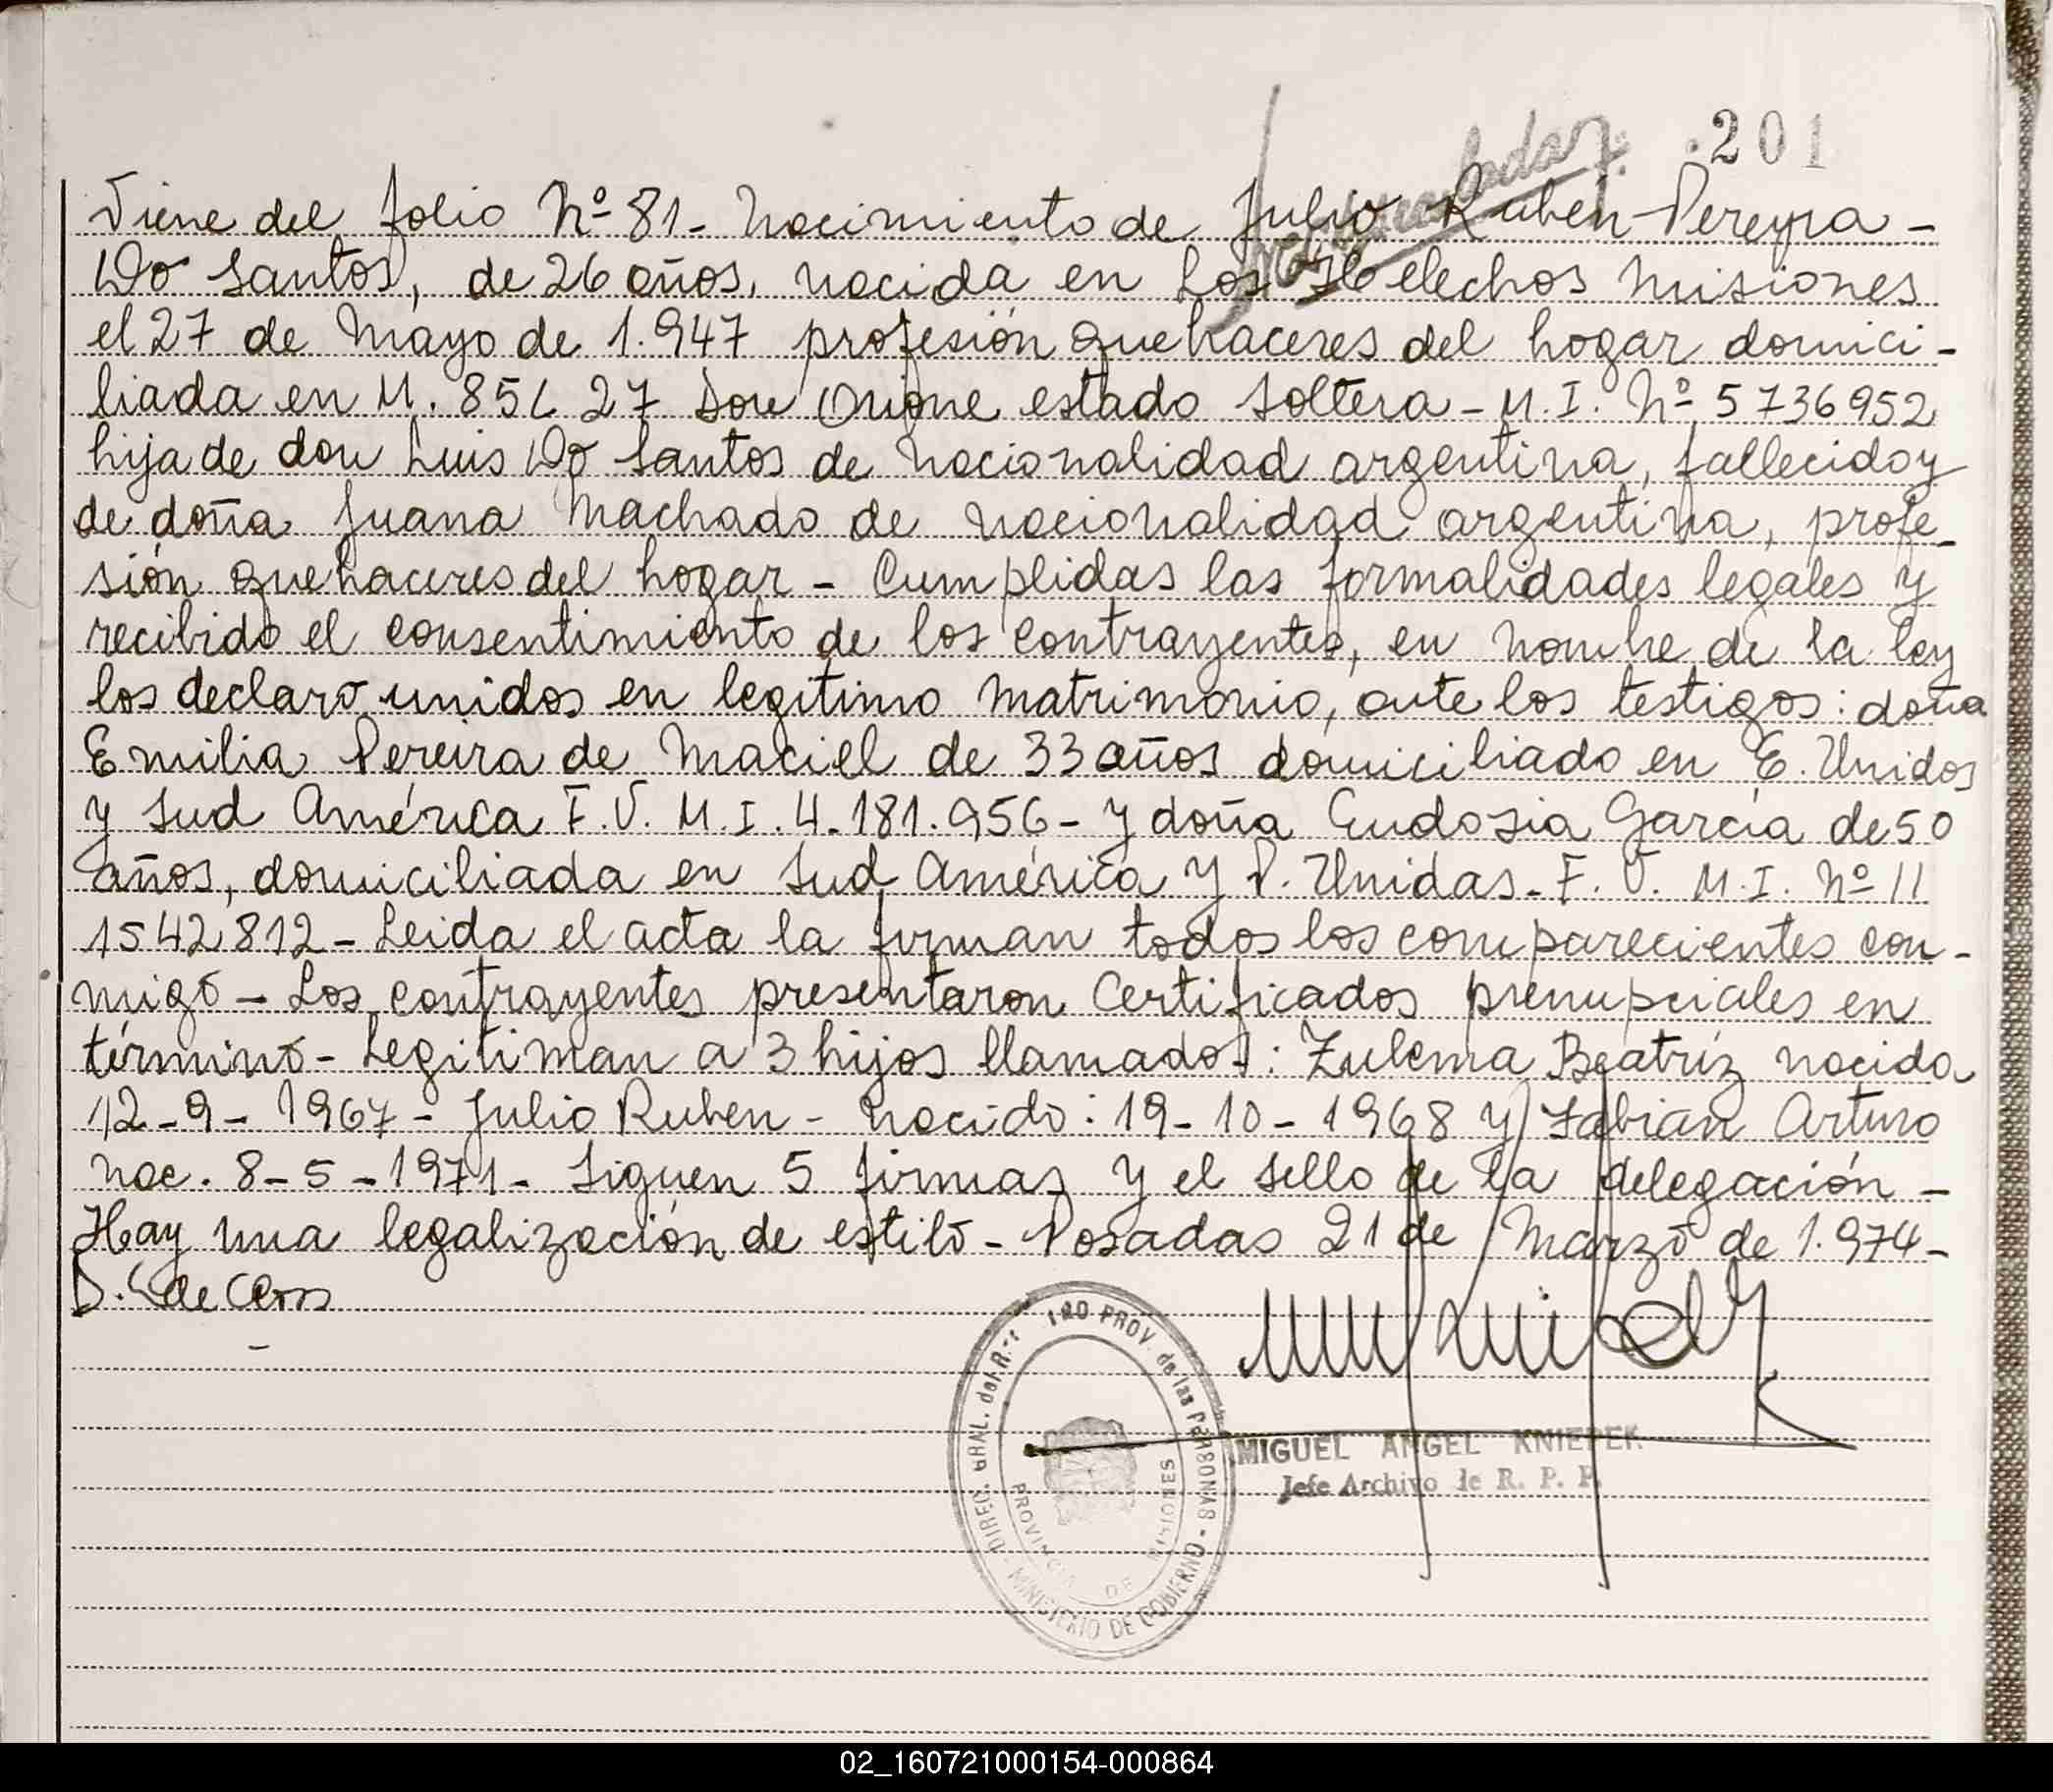 201
Viene del folio Nº 81 - Nacimiento de Julio Rubén Pereyra -
Do Santos, de 26 años, nacida en Los Helechos Misiones
el 27 de Mayo de 1.947 profesión quehaceres del hogar domici-
liada en M. 85 C 27 Don Orione estado soltera - M. I. Nº 5736952
hija de don Luis Do Santos de nacionalidad argentina, fallecido y
de doña Juana Machado de nacionalidad argentina, profe-
sión quehaceres del hogar - Cumplidas las formalidades legales y
recibido el consentimiento de los contrayentes, en nombre de la ley
los declaro unidos en legítimo matrimonio, ante los testigos: doña
Emilia Pereira de Maciel de 33 años domiciliado en E. Unidos
y Sud América F. V. M. I. 4.181.956 - y doña Eudosia García de 50
años, domiciliada en Sud América y P. Unidas - F. V. M. I. Nº 11
1542812 - Leida el acta la firman todos los comparecientes con-
migo - Los contrayentes presentaron Certificados prenupciales en
término - Legitiman a 3 hijos llamados: Zulema Beatríz nacida
12-9-1967 - Julio Ruben - nacido: 19-10-1968 y Fabián Arturo
nac. 8-5-1971 - Siguen 5 firmas y el sello de la delegación -
Hay una legalización de estilo - Posadas 21 de Marzo de 1.974 -
DIREC. GRAL. del R. PROV. de las PERSONAS
PROVINCIA DE MISIONES
MINISTERIO DE GOBIERNO
MIGUEL ANGEL KNIEPEK
Jefe Archivo de R. P. P.
02_160721000154-000864